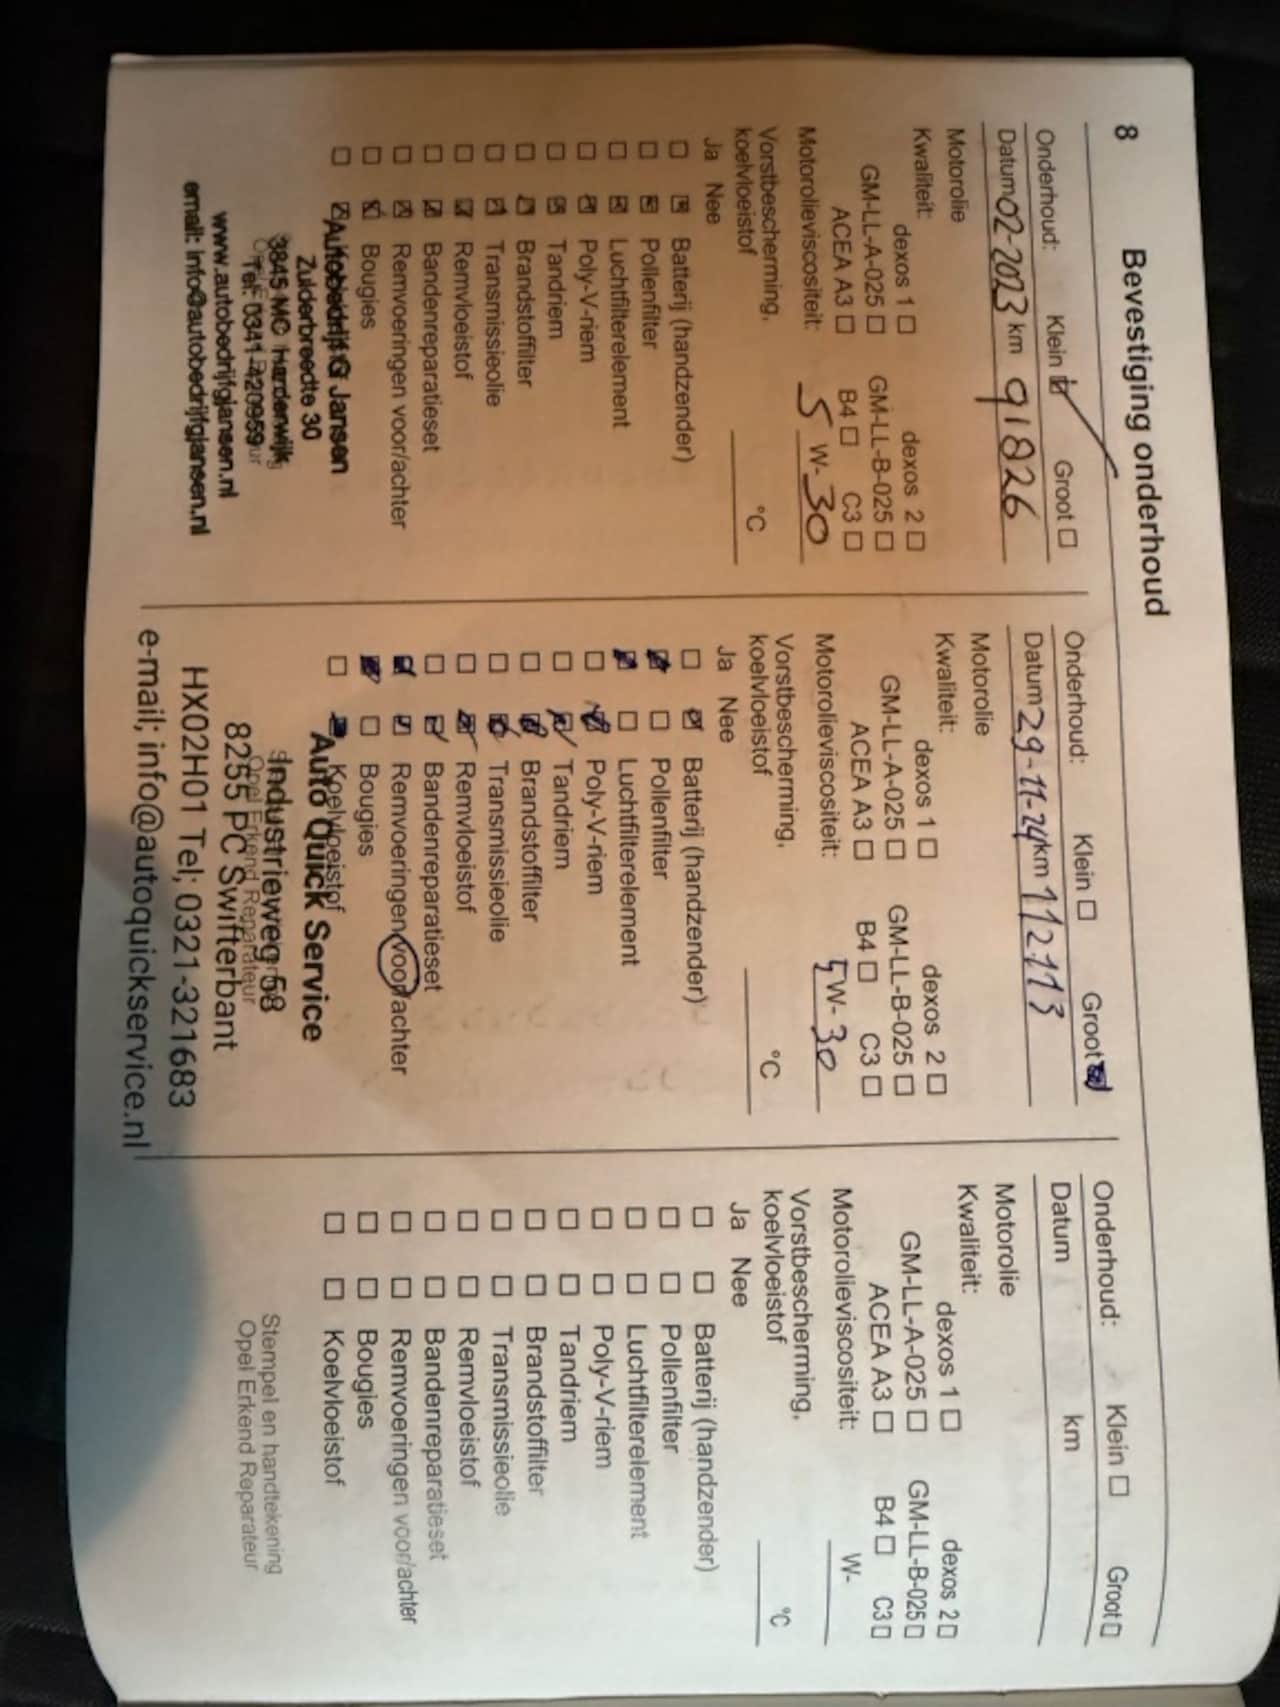 8 Bevestiging onderhoud
Onderhoud: Klein Groot
Datum 02-2023 km 91826
Motorolie
Kwaliteit: dexos 1 dexos 2
GM-LL-A-025 GM-LL-B-025
ACEA A3 B4 C3
Motorolieviscositeit: 5 W- 30
Vorstbescherming,
koelvloeistof °C
Ja Nee
Batterij (handzender)
Pollenfilter
Luchtfilterelement
Poly-V-riem
Tandriem
Brandstoffilter
Transmissieolie
Remvloeistof
Bandenreparatieset
Remvoeringen voor/achter
Bougies
Autobedrijf G Jansen
Zuiderbreedte 30
3845 MC Harderwijk
Tel: 0341-420959
www.autobedrijfgjansen.nl
email: info@autobedrijfgjansen.nl
Onderhoud: Klein Groot
Datum 29-11-24 km 112113
Motorolie
Kwaliteit: dexos 1 dexos 2
GM-LL-A-025 GM-LL-B-025
ACEA A3 B4 C3
Motorolieviscositeit: 5 W- 30
Vorstbescherming,
koelvloeistof °C
Ja Nee
Batterij (handzender)
Pollenfilter
Luchtfilterelement
Poly-V-riem
Tandriem
Brandstoffilter
Transmissieolie
Remvloeistof
Bandenreparatieset
Remvoeringen voor/achter
Bougies
Koelvloeistof
Auto Quick Service
Industrieweg 58
Opel Erkend Reparateur
8255 PC Swifterbant
HX02H01 Tel; 0321-321683
e-mail; info@autoquickservice.nl
Onderhoud: Klein Groot
Datum km
Motorolie
Kwaliteit: dexos 1 dexos 2
GM-LL-A-025 GM-LL-B-025
ACEA A3 B4 C3
Motorolieviscositeit: W-
Vorstbescherming,
koelvloeistof °C
Ja Nee
Batterij (handzender)
Pollenfilter
Luchtfilterelement
Poly-V-riem
Tandriem
Brandstoffilter
Transmissieolie
Remvloeistof
Bandenreparatieset
Remvoeringen voor/achter
Bougies
Koelvloeistof
Stempel en handtekening
Opel Erkend Reparateur